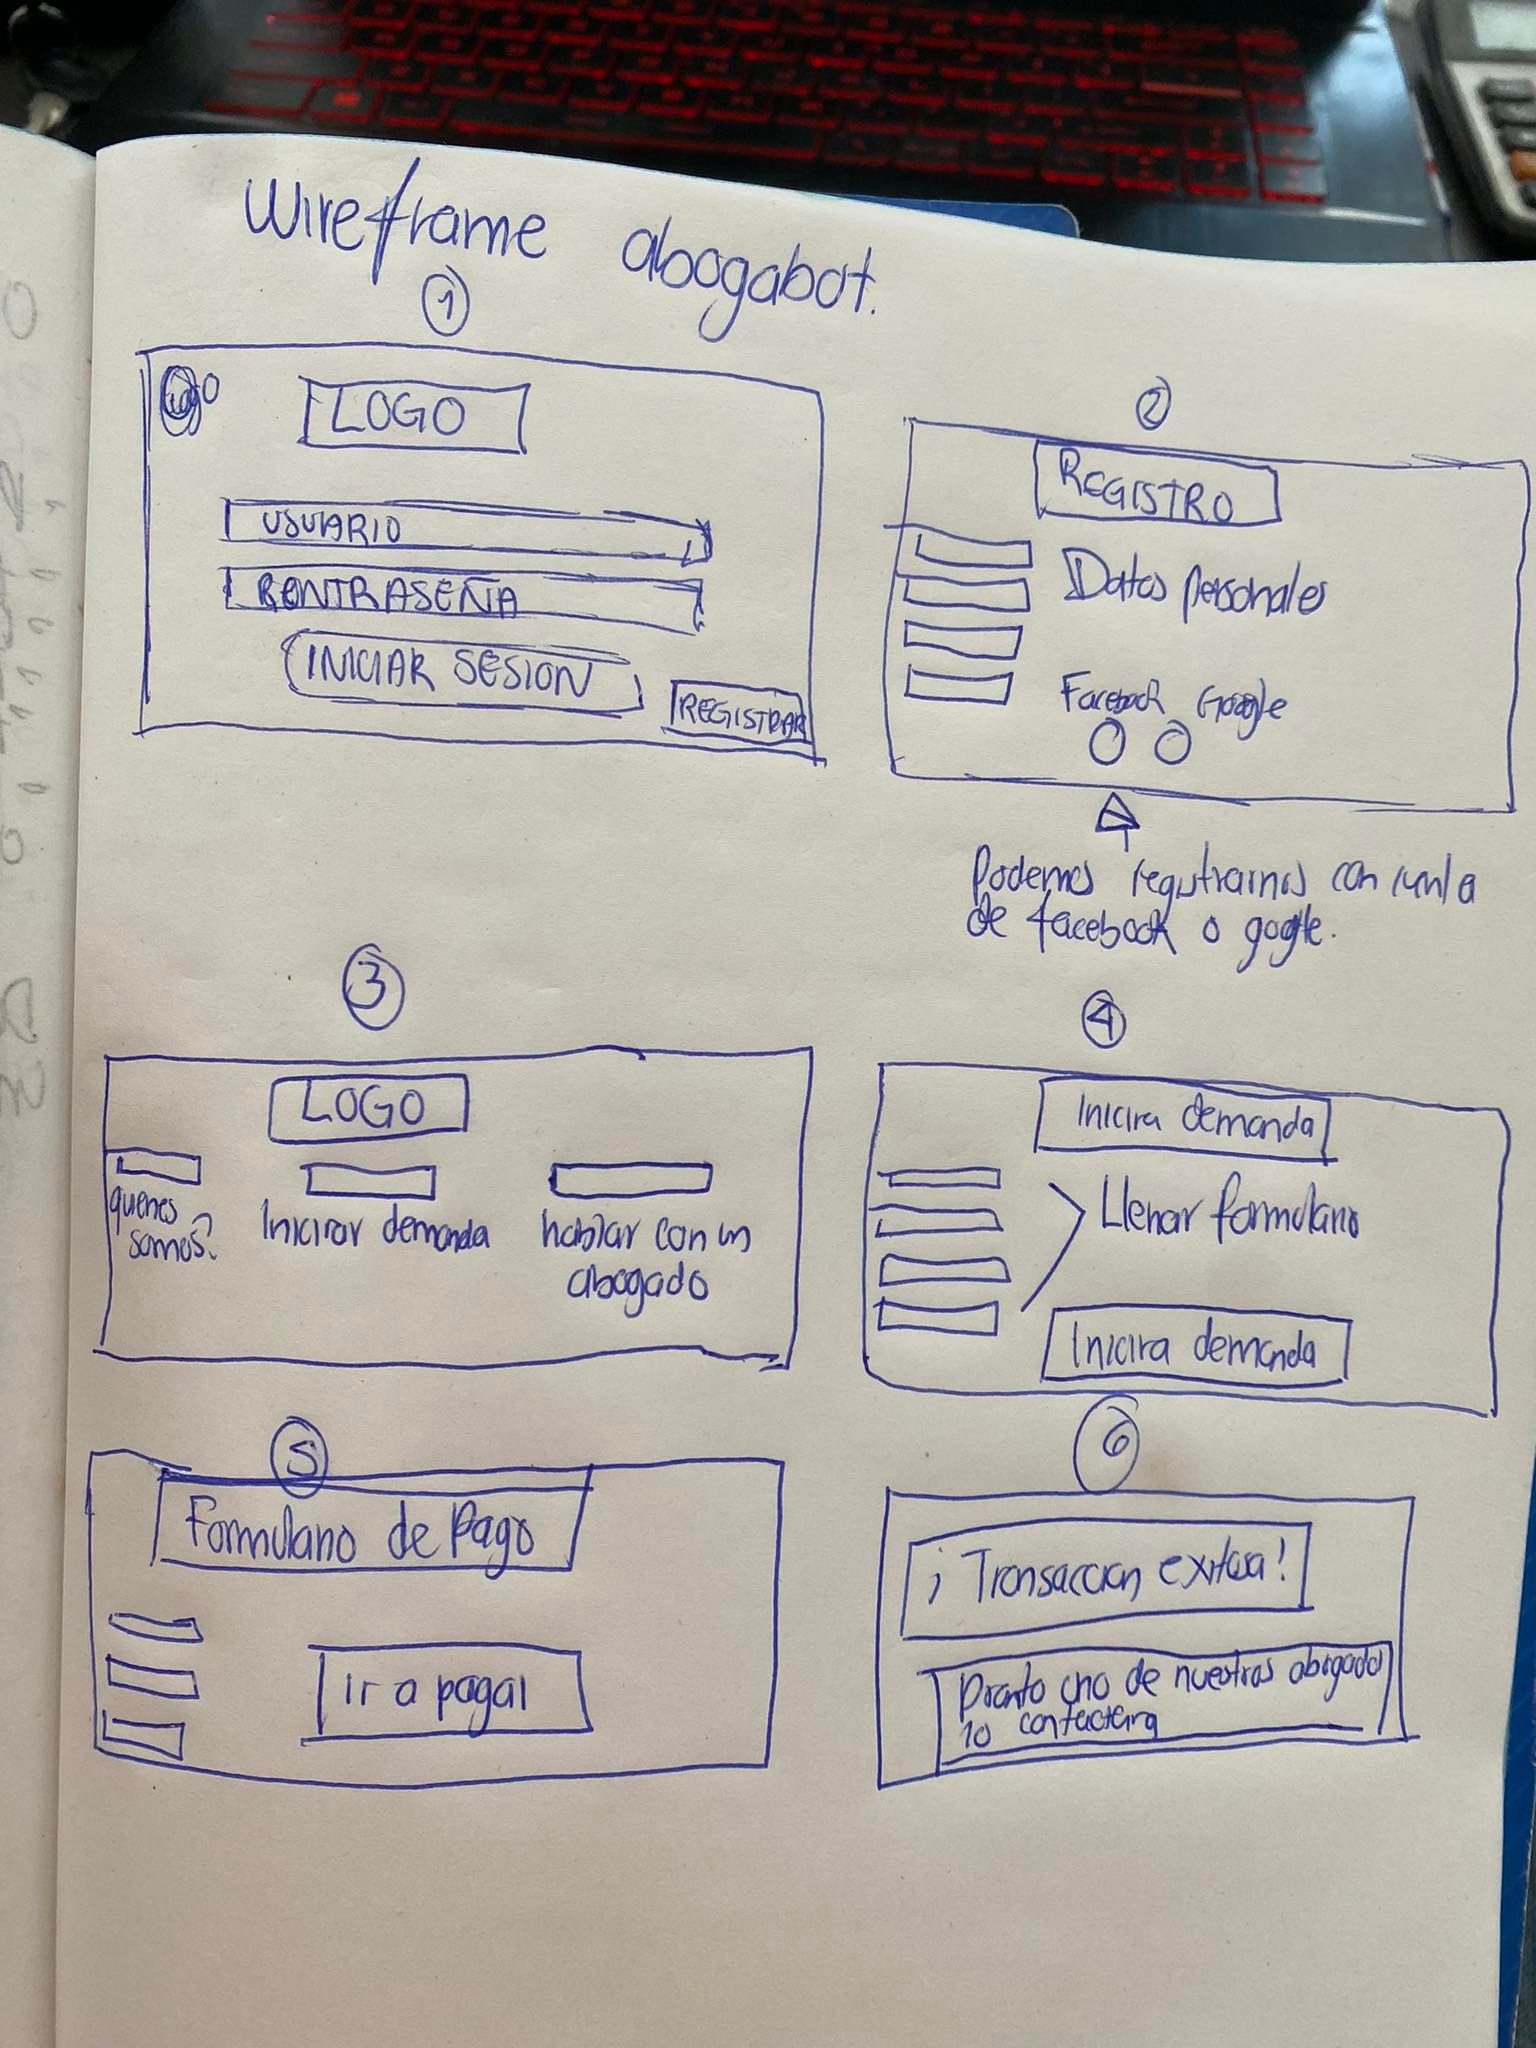 Wireframe abogabot.
1
LOGO
USUARIO
CONTRASEÑA
INICIAR SESION
REGISTRAR
2
REGISTRO
Datos personales
Facebook Google
Podemos registrarnos con
de facebook o google.
3
LOGO
quienes
somos?
Inicirar demanda
hablar con un
abogado
4
Inicira demanda
Llenar formulario
Inicira demanda
5
Formulario de Pago
Ir a pagar
6
¡Transaccion exitosa!
Pronto uno de nuestros abogados
lo contactara